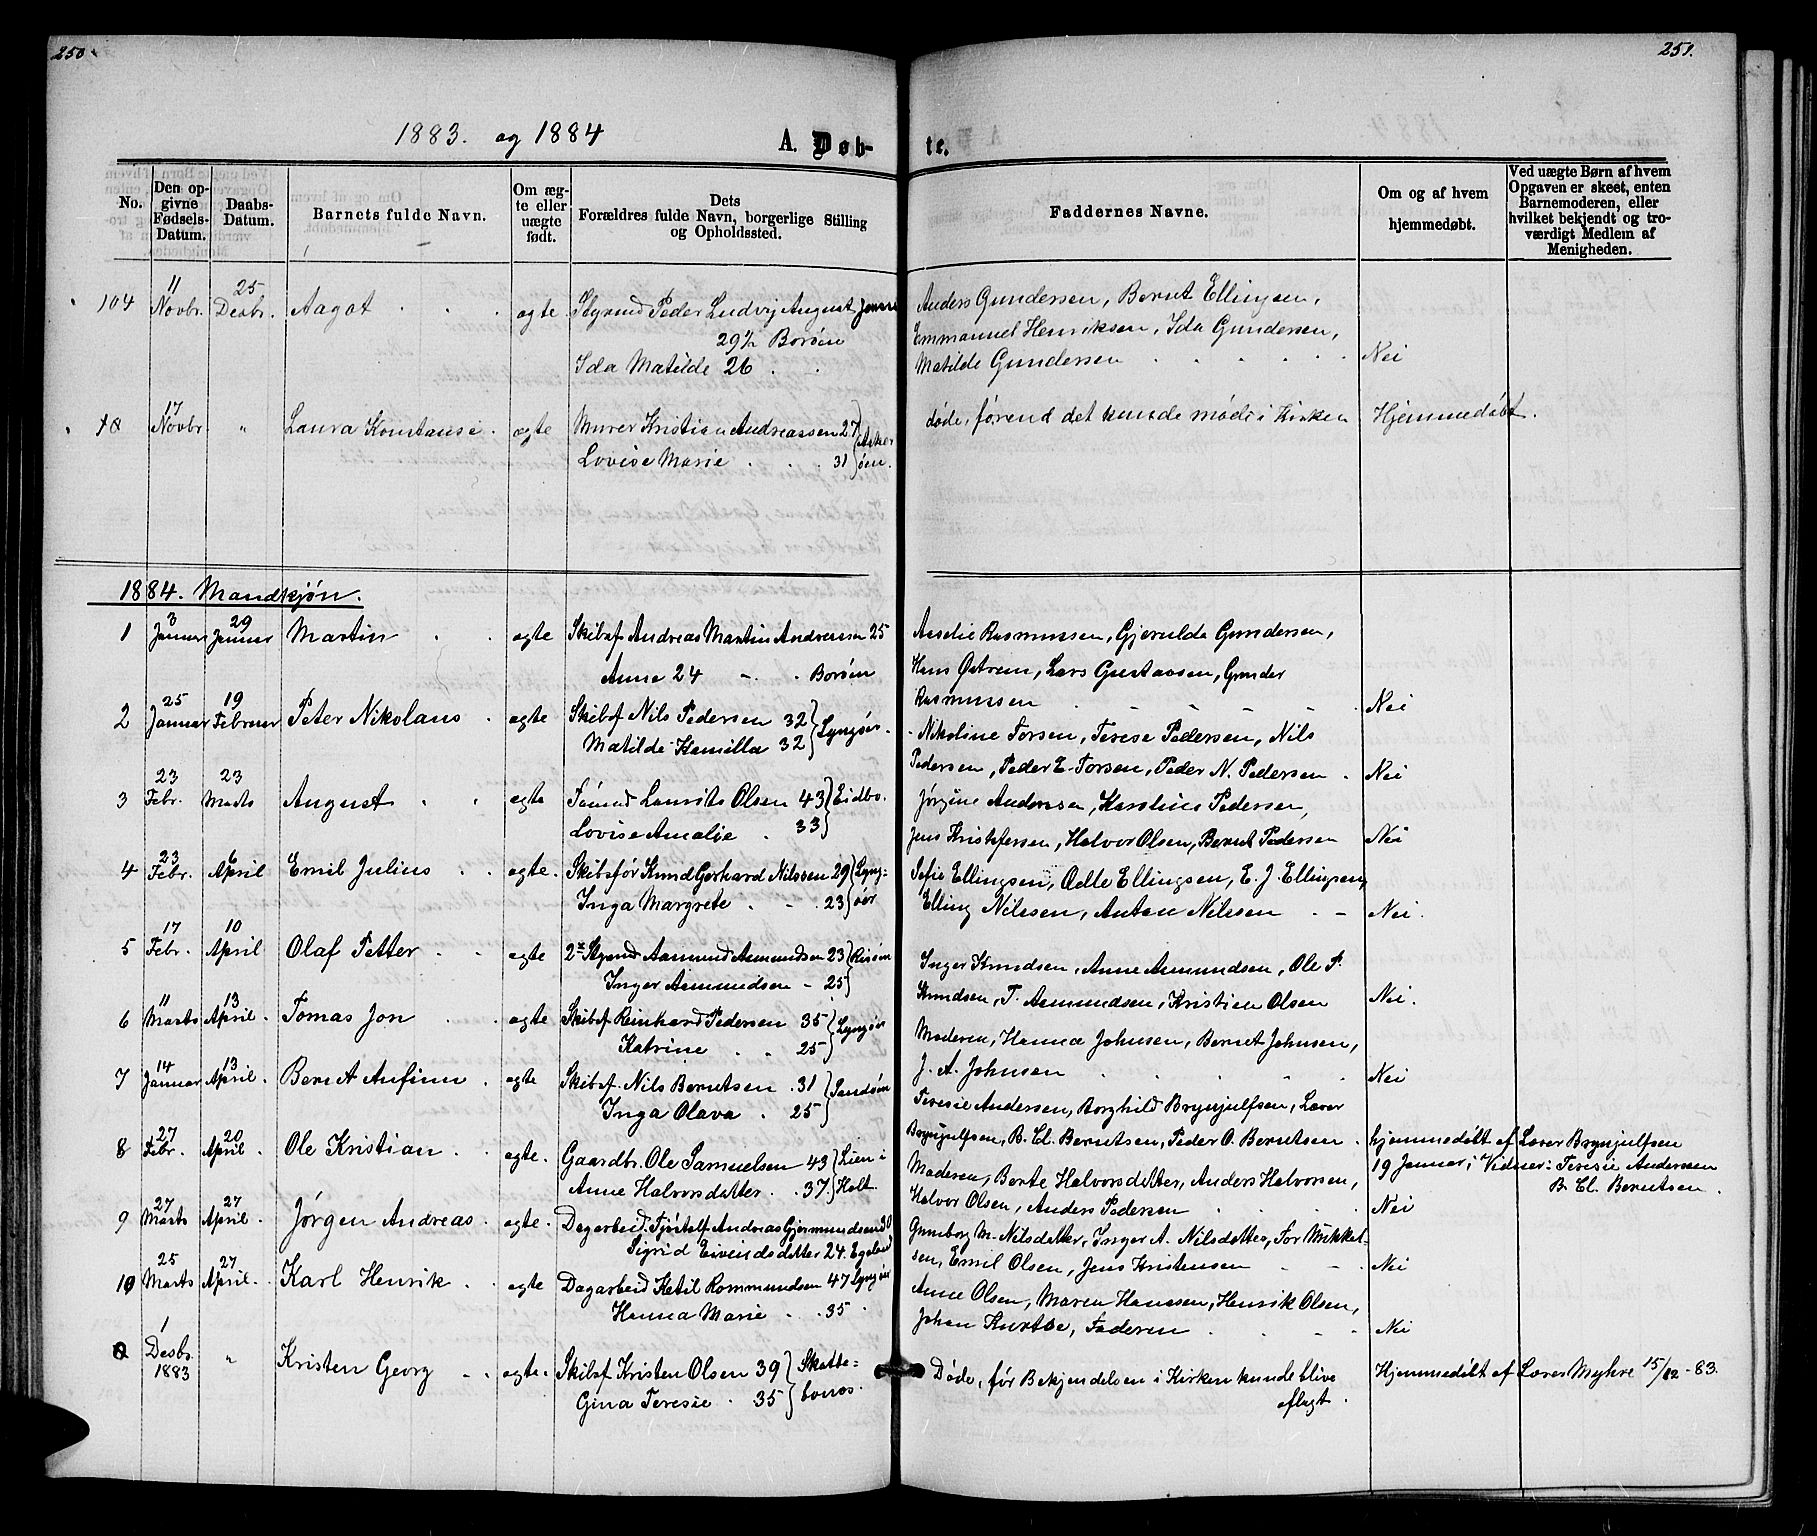 250
251.
1883. og 1884
A. Døb-
te.
No.
Den op-
givne
Fødsels-
Datum.
Daabs-
Datum.
Barnets fulde Navn.
Om æg-
te eller
uægte
født.
Dets
Forældres fulde Navn, borgerlige Stilling
og Opholdssted.
Faddernes Navne.
Om og af hvem
hjemmedøbt.
Ved uægte Børn af hvem
Opgaven er skeet, enten
Barnemoderen, eller
hvilket bekjendt og tro-
værdigt Medlem af
Menigheden.
104 11 Novbr. 25 Desbr. Aagot ægte Styrmd Peder Ludvig August
29½ Borøen
Ida Matilde 26
Anders Gundersen, Bernt Ellingsen,
Emmanuel Henriksen, Ida Gundersen,
Matilde Gundersen Nei
17 Novbr. " Laura Konstanse ægte Murer Kristian Andreassen 27
Lovise Marie 31 Askerøen.
døde, førend det kunde møde i Kirken Hjemmedøbt.
1884. Mandkjøn.
1 3 Januar 29 Januar Martin ægte Skibsf Andreas Martin Andreassen 25
Anna 24 Borøen
Aaselie Rasmussen, Gjerulda Gundersen,
Hans Østrem, Lars Gustavsen, Gunder
Rasmussen Nei
2 25 Januar 19 Februar Peter Nikolaus ægte Skibsf Nils Pedersen 32
Matilde Kamilla 32 Lyngør.
Nikoline Torsen, Terese Pedersen, Nils
Pedersen, Peder E. Torsen, Peder N. Pedersen Nei
3 23 Febr. 23 Marts August ægte Tømmd Laurits Olsen 43
Lovise Amalie 33 Eidbo.
Jørgine Andersen, Karoline Pedersen,
Jens Kristofersen, Halvor Olsen, Bernt Pedersen Nei
4 23 Febr. 6 April Emil Julius ægte. Skibsfør Knud Gerhard Nilssen 29
Inga Margrete 23 Lyng-
ør
Sofie Ellingsen, Adlle Ellingsen, E. J. Ellingsen,
Elling Nilssen, Anton Nilssen Nei.
5 17 Febr. 10 April Olaf Petter ægte 2x Styrmd Aamund Aamundsen 23
Inger Aamundsen 25 Risøen
Inger Knudsen, Anne Aamundsen, Ole P.
Knudsen, T. Aamundsen, Kristian Olsen Nei.
6 11 Marts 13 April. Tomas Jon ægte Skibsf Reinhard Pedersen 35
Katrine 25 Lyngør
Moderen, Hanna Johnsen, Bernt Johnsen,
J. A. Johnsen Nei
7 14 Januar 13 April. Bernt Anfinn ægte Skibsf. Nils Berntsen 31
Inga Olava 25 Sandøen
Teresie Andersen, Borghild Brynjulfsen, Lærer
Brynjulfsen, B. Cl. Berntsen, Peder O. Berntsen hjemmedøbt af Lærer Brynjulfsen
19 Januar; Vidner: Teresie Andersen
B. Cl. Berntsen.
8 27 Febr. 20 April. Ole Kristian ægte. Gaardbr. Ole Samuelsen 43
Anne Halvorsdatter 37. Lien i
Holt.
Moderen, Berte Halvorsdatter, Anders Halvorsen,
Halvor Olsen, Anders Pedersen Nei
9 27 Marts 27 April. Jørgen Andreas ægte. Dagarbeid. Andreas Gjermundsen 30
Sigrid Eivindsdatter 24. Egeland
Gunborg M. Nilsdatter, Inger A. Nilsdatter, Tor Mikkel-
sen, Emil Olsen, Jens Kristensen Nei
10 25 Marts 27 April. Karl Henrik ægte Dagarbeid Ketil Rommundsen 47 Lyngør
Hanna Marie 35
Anne Olsen, Maren Hanssen, Henrik Olsen,
Johan Knutse, Faderen Nei
0 1 Desbr. 1883 " Kristen Georg ægte. Skibsf Kristen Olsen 39
Gina Teresie 35 Skotte-
bonos.
Døde, før Bekjendelsen i Kirken kunde blive
aflagt.
Hjemmedøbt af Lærer Myhre 15/12 - 83.